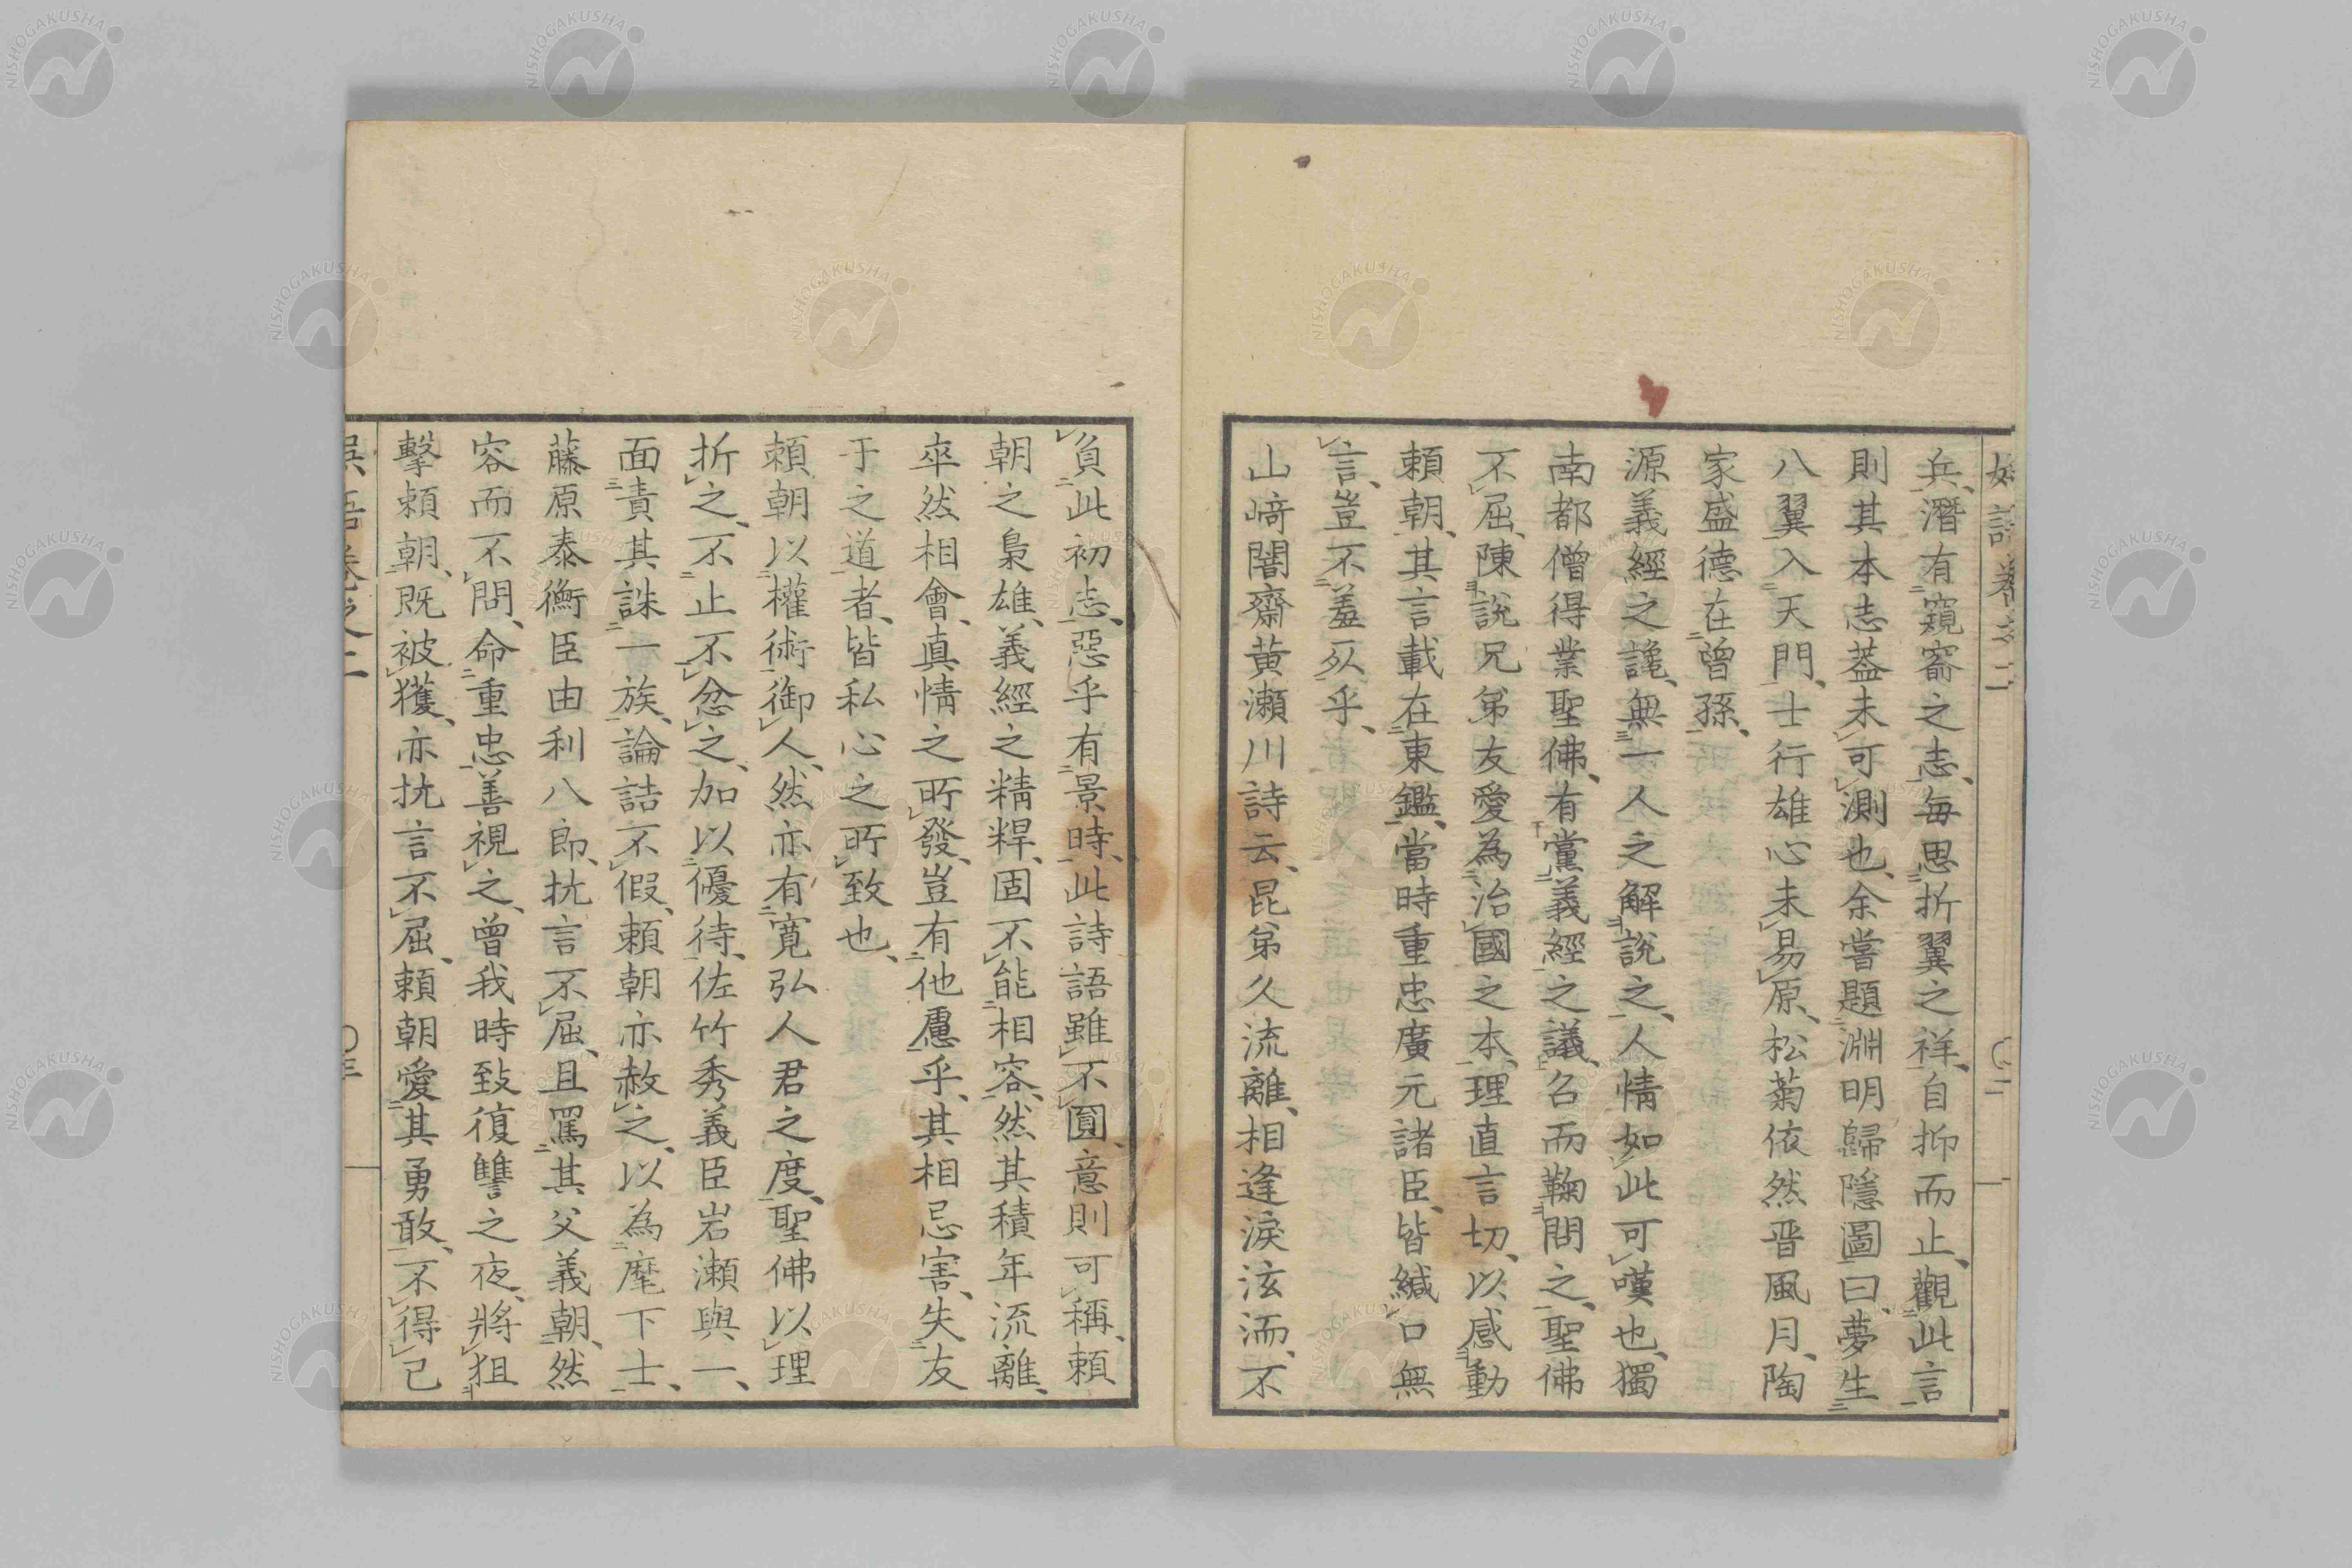 兵、潛有窺窬之志、每思折翼之祥、自抑而止、觀此言
則其本志葢未可測也、余嘗題淵明歸隱圖曰、夢生
八翼入天門、士行雄心未易原、松菊依然晋風月、陶
家盛德在曽孫、
源義經之讒、無一人之解說之、人情如此可嘆也、獨
南都僧得業聖佛、有黨義經之議、召而鞠問之、聖佛
不屈、陳說兄弟友愛為治國之本、理直言切、以感動
頼朝、其言載在東鑑、當時重忠廣元諸臣、皆緘口無
言、豈不羞死乎、
山﨑闇齋黄瀬川詩云、昆弟久流離、相逢淚泫洏、不
負此初志、惡乎有景時、此詩語雖不圓、意則可稱、頼
朝之梟雄、義經之精悍、固不能相容、然其積年流離、
卒然相會、真情之所發、豈有他慮乎、其相忌害、失友
于之道者、皆私心之所致也、
頼朝以權術御人、然亦有寛弘人君之度、聖佛以理
折之、不止不忿之、加以優待、佐竹秀義臣岩瀬與一、
面責其誅一族、論詰不假、頼朝亦赦之、以為麾下士、
藤原泰衡臣由利八郎、抗言不屈、且罵其父義朝、然
容而不問、命重忠善視之、曽我時致復讐之夜、將狙
擊頼朝、既被獲、亦抗言不屈、頼朝愛其勇敢、不得已
NISHOGAKUSHA